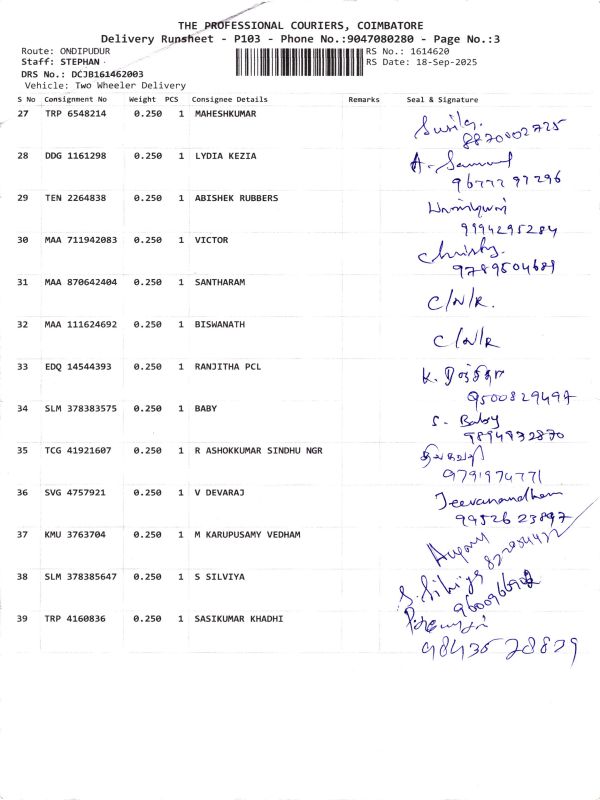 THE PROFESSIONAL COURIERS, COIMBATORE
Delivery Runsheet - P103 - Phone No.:9047080280 - Page No.:3
Route: ONDIPUDUR RS No.: 1614620
Staff: STEPHAN RS Date: 18-Sep-2025
DRS No.: DCJB161462003
Vehicle: Two Wheeler Delivery
S No Consignment No Weight PCS Consignee Details Remarks Seal & Signature
27 TRP 6548214 0.250 1 MAHESHKUMAR
8870002725
28 DDG 1161298 0.250 1 LYDIA KEZIA A. Samuel
9677297296
29 TEN 2264838 0.250 1 ABISHEK RUBBERS
9194295284
30 MAA 711942083 0.250 1 VICTOR Christy.
9789504689
31 MAA 870642404 0.250 1 SANTHARAM C/N/R.
32 MAA 111624692 0.250 1 BISWANATH C/N/R
33 EDQ 14544393 0.250 1 RANJITHA PCL K.
9500829497
34 SLM 378383575 0.250 1 BABY S. Baby
9894932870
35 TCG 41921607 0.250 1 R ASHOKKUMAR SINDHU NGR
9791974771
36 SVG 4757921 0.250 1 V DEVARAJ Jeevanandham
9952623897
37 KMU 3763704 0.250 1 M KARUPUSAMY VEDHAM
38 SLM 378385647 0.250 1 S SILVIYA S. Silviya
39 TRP 4160836 0.250 1 SASIKUMAR KHADHI
9843578879